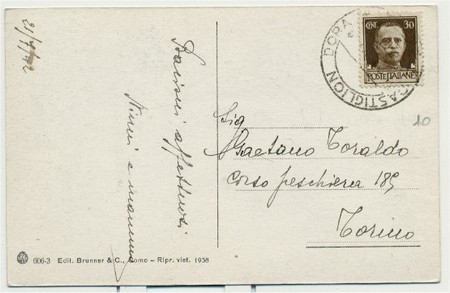 21/8/42
Bacioni affettuosi
Ninni e mamma
CENT. 30
POSTE ITALIANE
CASTIGLION DORA
10
Sig
Gaetano Toraldo
Corso Peschiera 185
Torino
606-3 Edit. Brunner & C., Como - Ripr. viet. 1938